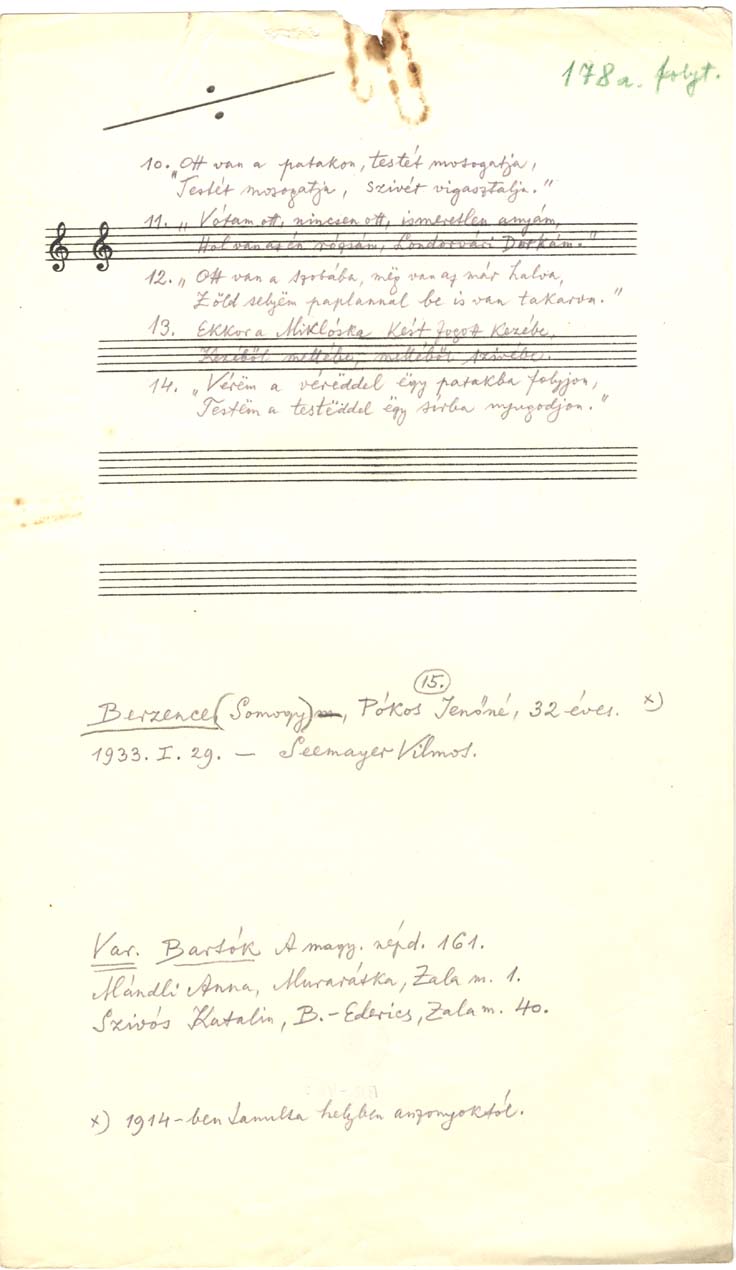 178a. folyt.
10. Ott van a patakon, testét mosogatja,
"Testét mosogatja, szivét vigasztalja."
11. „Vótam ott, nincsen ott, ismeretlen anyám,
Hol van az én rózsám, Londorvári Dorkám."
12. „Ott van a szobába, még van az már halva,
Zőld selyëm paplannal be is van takarva."
13. Ekkor a Miklóska kést fogott kezébe,
Kezéből mellébe, melléből szivébe.
14. „Vérëm a vérëddel ëgy patakba folyjon,
Testëm a testëddel ëgy sírba nyugodjon."
15.
Berzence (Somogy), Pókos Jenőné, 32 éves. x)
1933. I. 29. — Seemayer Vilmos.
Var. Bartók A magy. népd. 161.
Mándli Anna, Murarátka, Zala m. 1.
Szivós Katalin, B.-Ederics, Zala m. 40.
x) 1914-ben tanulta helyben asszonyoktól.